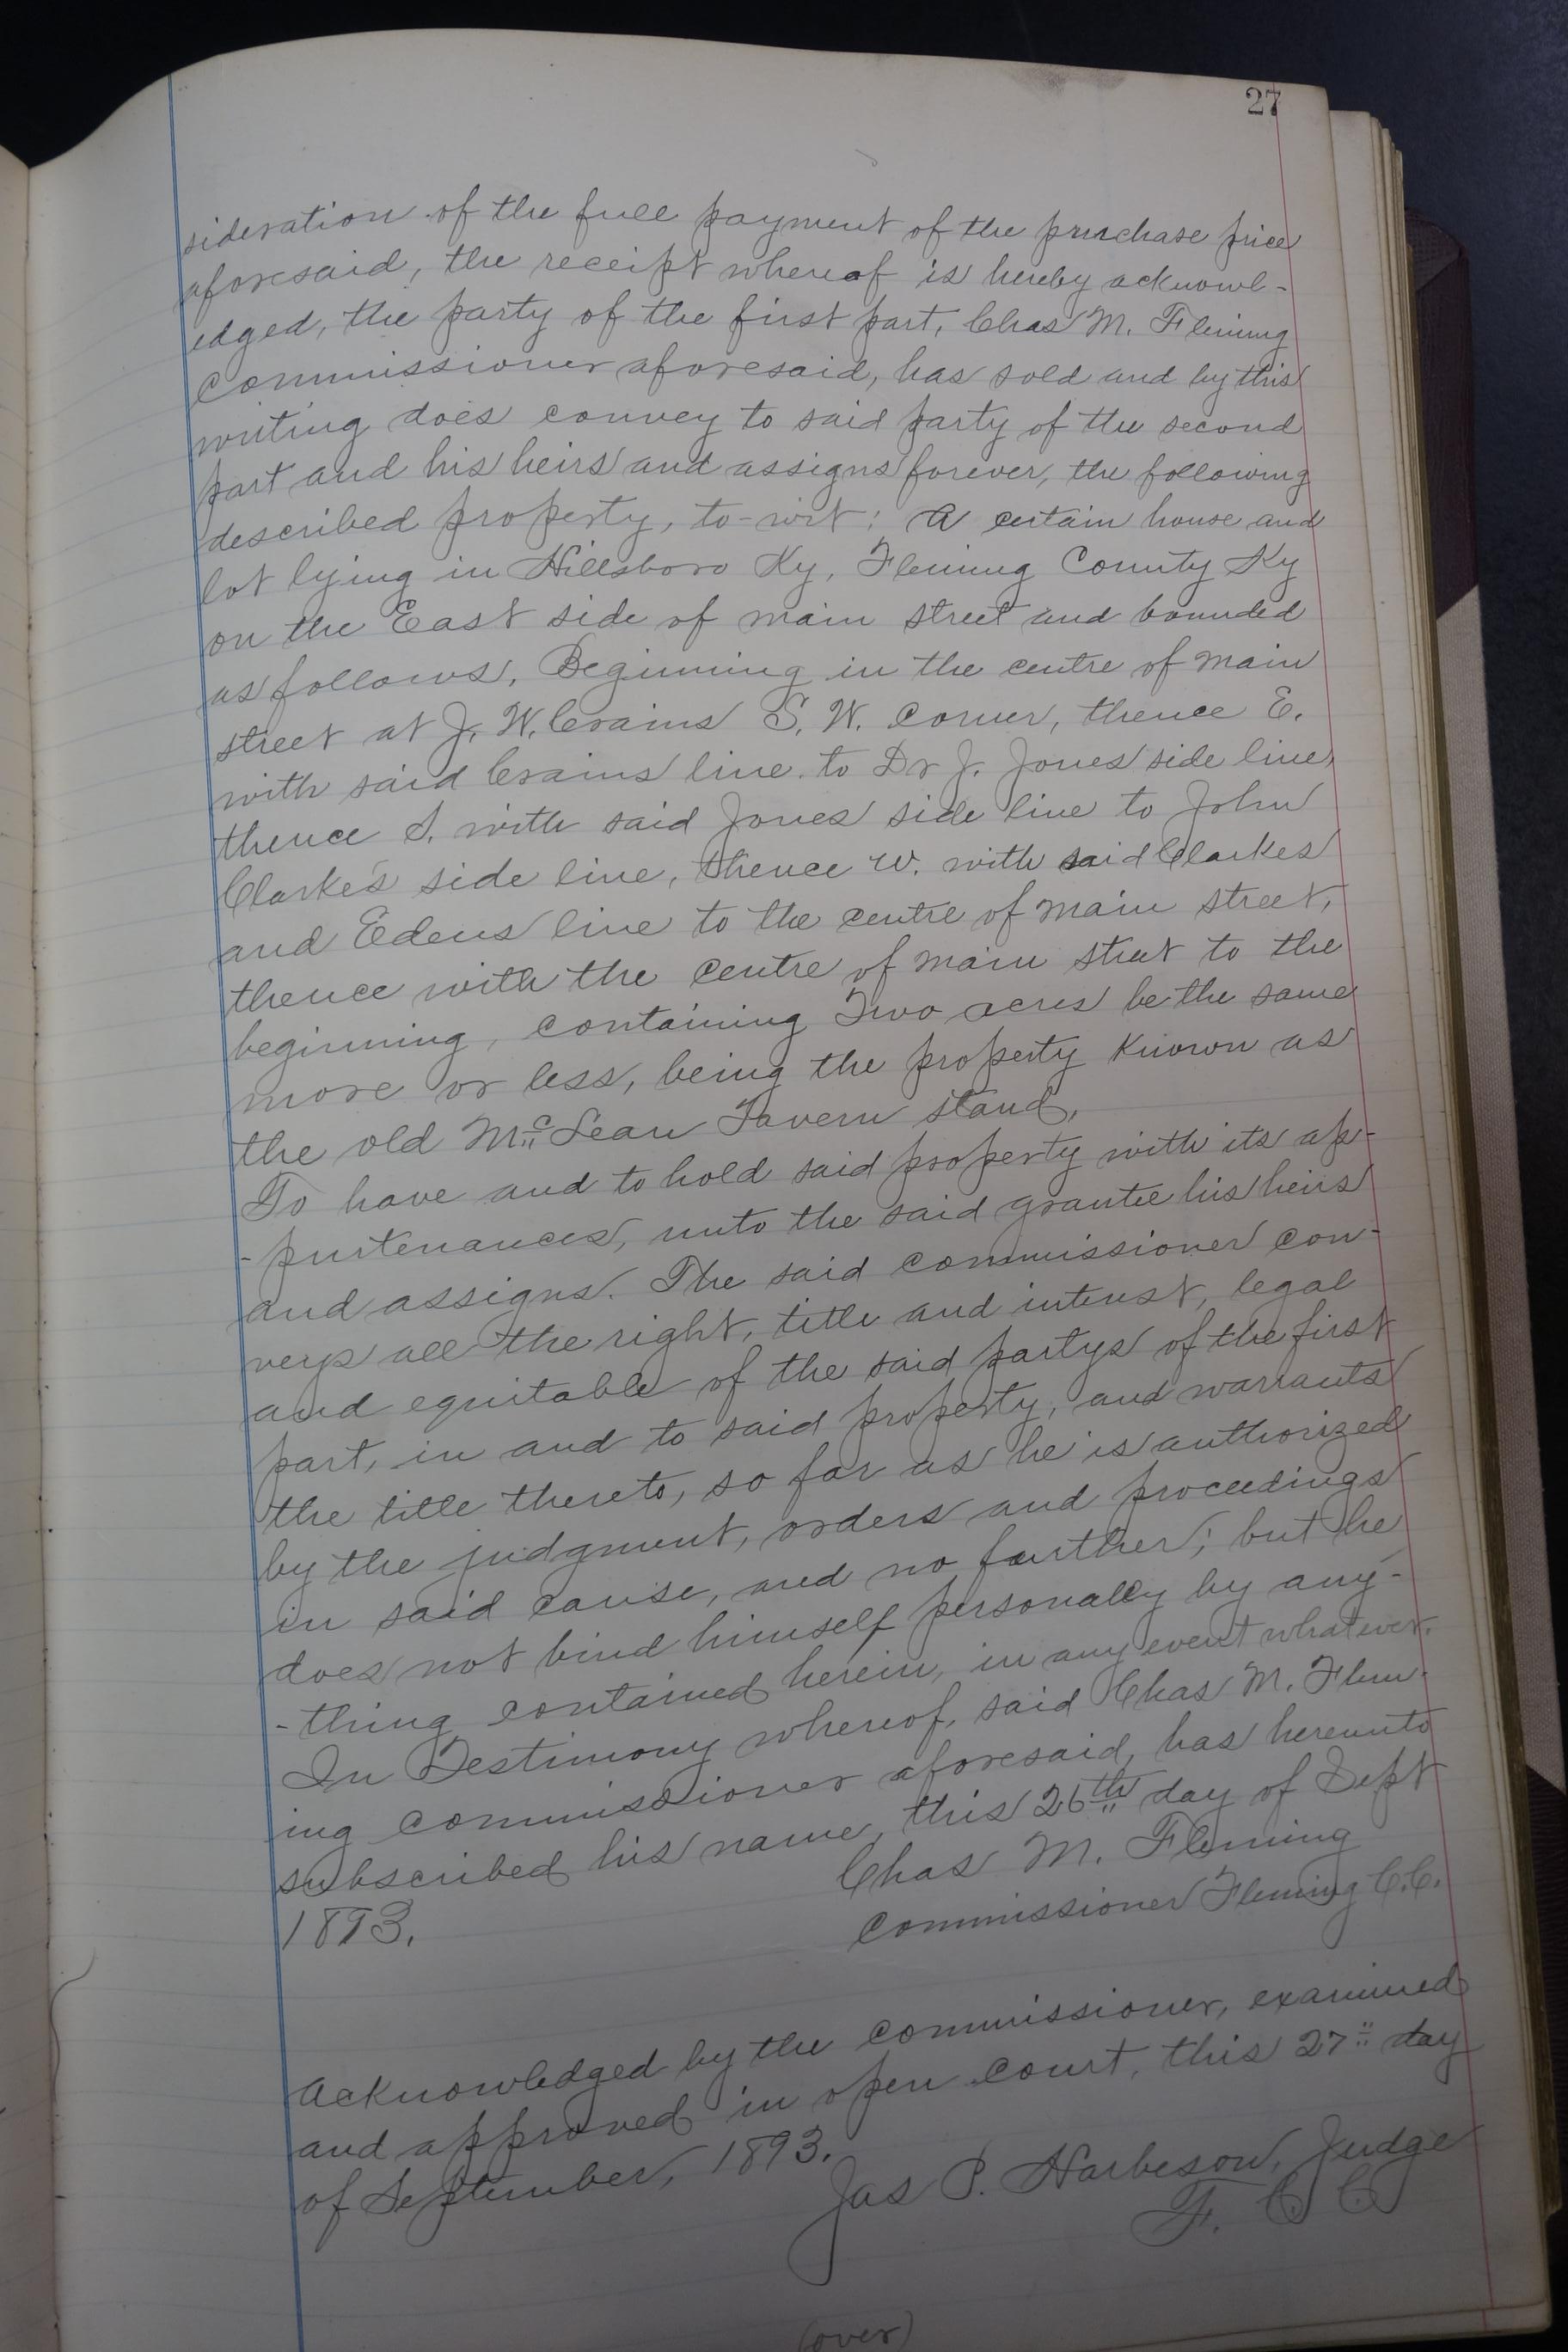 27
sideration of the full payment of the purchase price
aforesaid, the receipt whereof is hereby acknowl-
edged, the party of the first part, Chas M. Fleming
Commissioner aforesaid, has sold and by this
writing does convey to said party of the second
part and his heirs and assigns forever, the following
described property, to-wit: A certain house and
lot lying in Hillsboro Ky, Fleming County Ky
on the East side of main street and bounded
as follows, Beginning in the centre of main
street at J. W. Crains S. W. Corner, thence E.
with said Crains line to Dr J. Jones side line,
thence S. with said Jones side line to John
Clarke's side line, thence W. with said Clarkes
and Edens line to the centre of main street,
thence with the centre of main street to the
beginning, containing Two acres be the same
more or less, being the property Known as
the old McLean Tavern stand,
To have and to hold said property with its ap-
-purtenances, unto the said grantee his heirs
and assigns. The said commissioner con-
veys all the right, title and interest, legal
and equitable of the said partys of the first
part, in and to said property, and warrants
the title thereto, so far as he is authorized
by the judgment, orders and proceedings
in said cause, and no further; but he
does not bind himself personally by any-
-thing contained herein, in any event whatever.
In Testimony whereof, said Chas M. Flem-
ing commissioner aforesaid, has hereunto
subscribed his name, this 26th day of Sept
1893.
Chas M. Fleming
Commissioner Fleming C.C.
Acknowledged by the commissioner, examined
and approved in open court, this 27" day
of September, 1893.
Jas P. Harbeson, Judge
F. C C
(over)